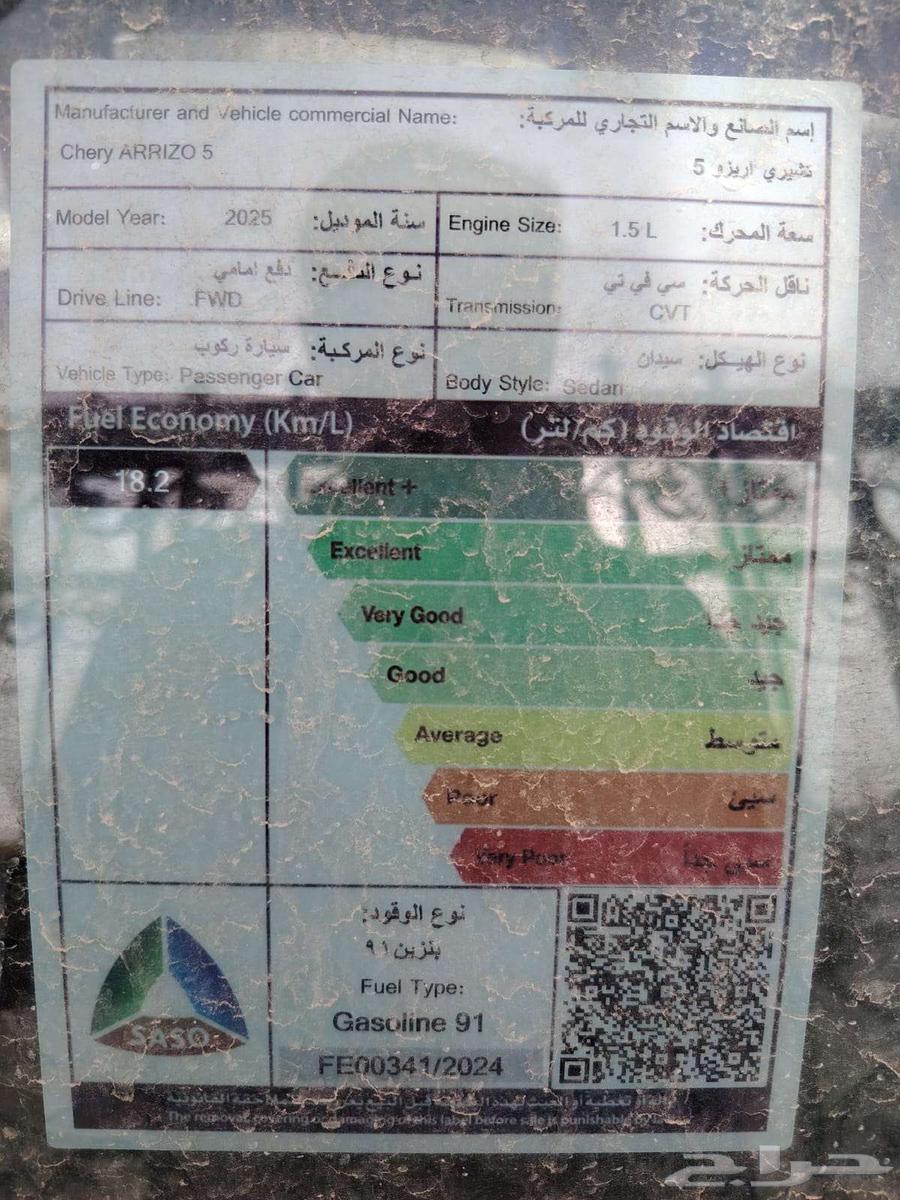 Manufacturer and Vehicle commercial Name:
إسم الصانع والاسم التجاري للمركبة:
Chery ARRIZO 5
تشيري اريزو 5
Model Year: 2025 سنة الموديل:
Engine Size: 1.5 L سعة المحرك:
نوع الدفع: دفع امامي
Drive Line: FWD
ناقل الحركة: سي في تي
Transmission: CVT
نوع المركبة: سيارة ركوب
Vehicle Type: Passenger Car
نوع الهيكل: سيدان
Body Style: Sedan
Fuel Economy (Km/L)
اقتصاد الوقود (كم/لتر)
18.2
Excellent + ممتاز
Excellent ممتاز
Very Good جيد جدا
Good جيد
Average متوسط
Poor سيئ
Very Poor سيئ جدا
نوع الوقود:
بنزين ٩١
Fuel Type:
Gasoline 91
SASO
FE00341/2024
The removal, covering or damaging of this label before sale is punishable by
حراج